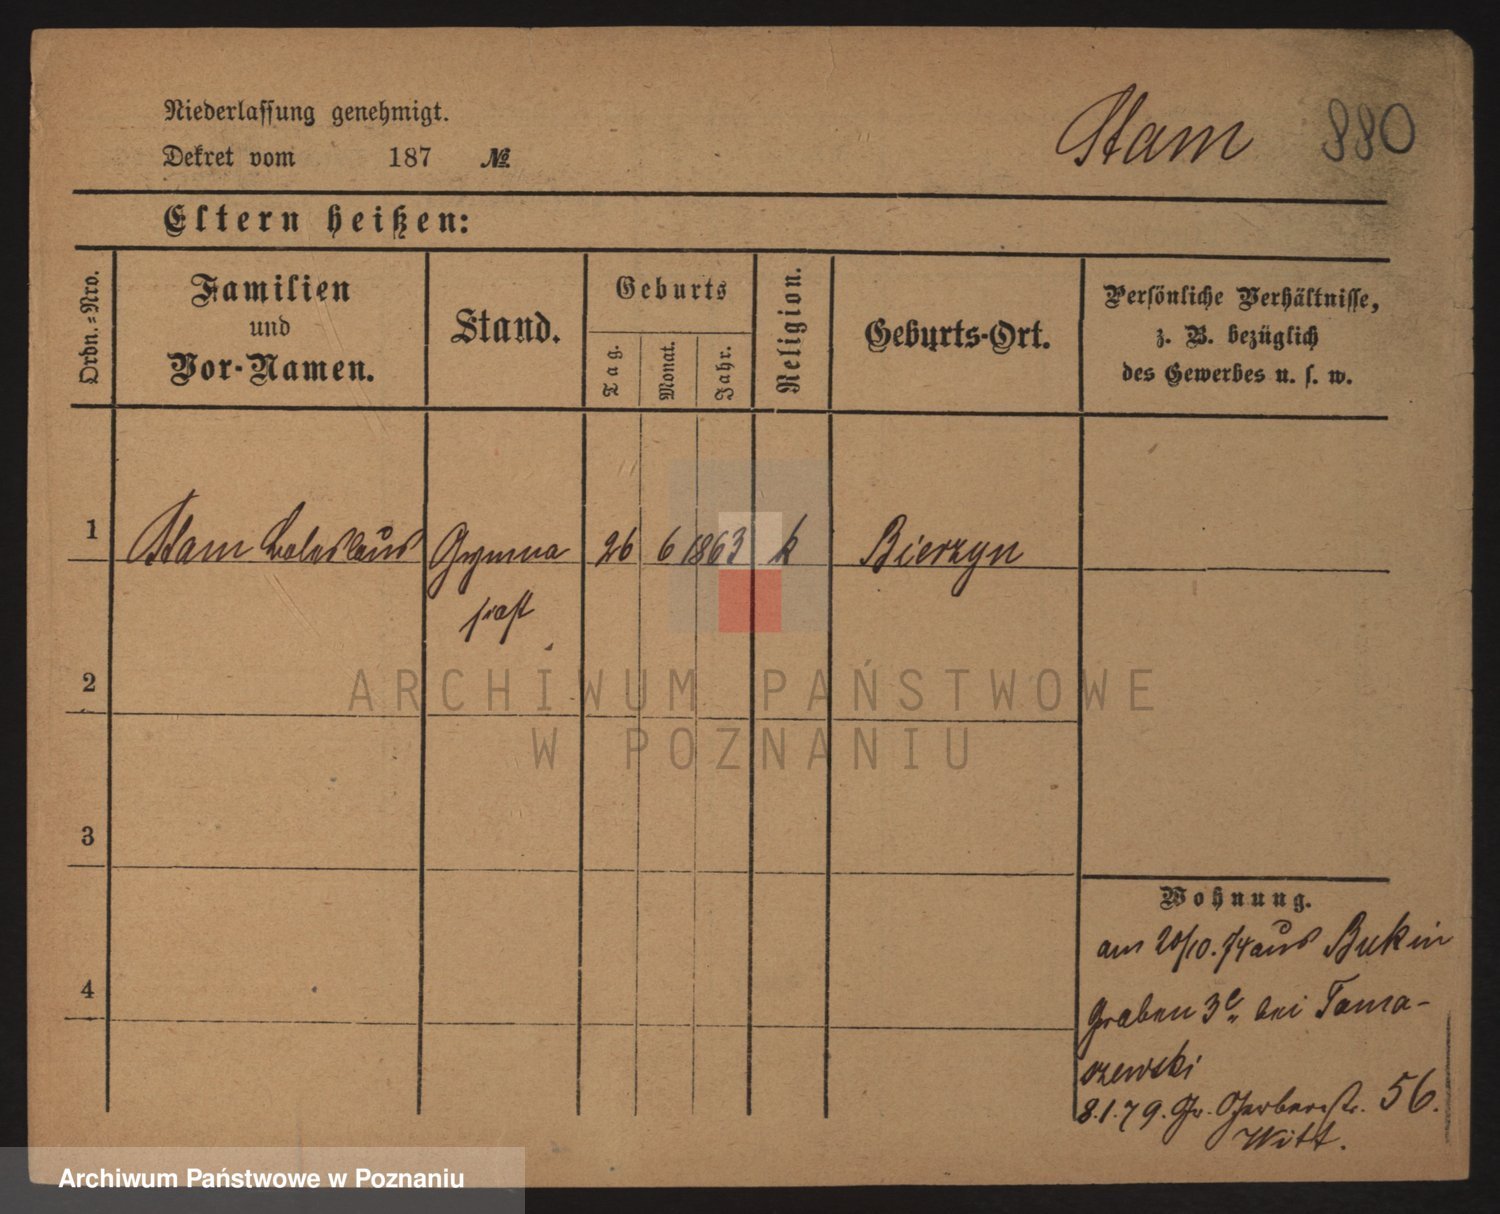 Niederlassung genehmigt.
Dekret vom 187 №
Stam 880
Eltern heißen:
Ordn.-Nro.
Familien
und
Vor-Namen.
Stand.
Geburts
Tag.
Monat.
Jahr.
Religion.
Geburts-Ort.
Persönliche Verhältnisse,
z. B. bezüglich
des Gewerbes u. s. w.
1 Stam Boleslaus Gymna 26 6 1863 k Bierzyn
siast
2
3
4
Wohnung.
am 20/10. 74 aus Buk in
Graben 3c bei Toma-
szewski
8.1.79. Gr. Gerberstr. 56.
Witt.
ARCHIWUM PAŃSTWOWE
W POZNANIU
Archiwum Państwowe w Poznaniu